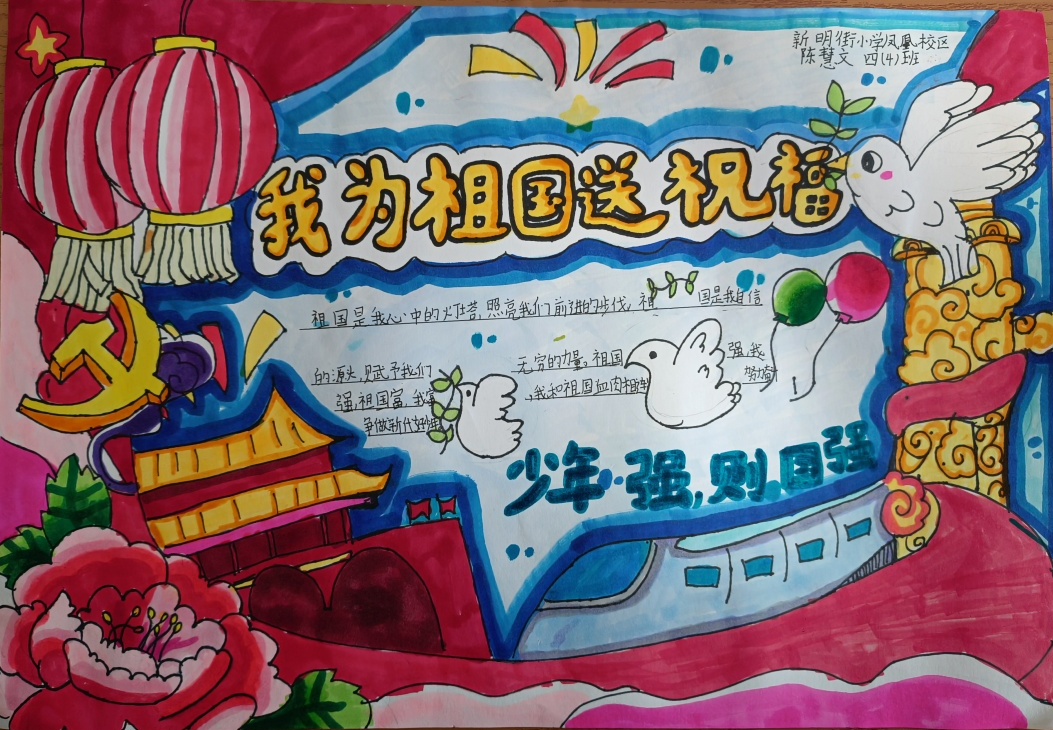 新明街小学凤凰校区
陈慧文 四(4)班
我为祖国送祝福
祖国是我心中的灯塔,照亮我们前进的步伐,祖 国是我自信
的源头,赋予我们 无穷的力量,祖国 强,我
强,祖国富,我富 ,我和祖国血肉相连 努力奋
争做新代好
少年强,则国强